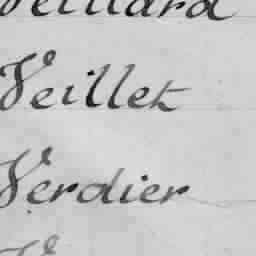 Veillard
Veillet
Verdier